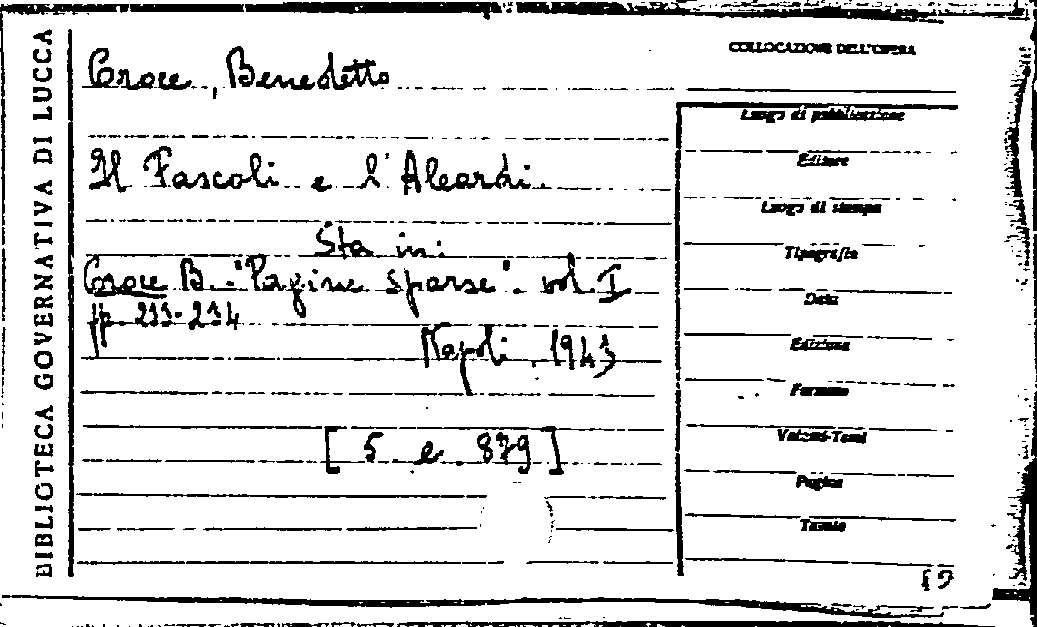 BIBLIOTECA GOVERNATIVA DI LUCCA
COLLOCAZIONE DELL'OPERA
Croce, Benedetto
Il Pascoli e l'Aleardi.
Sta in:
Croce B. "Pagine sparse". vol. I
pp. 233-234
Napoli. 1943
[5. e. 879]
Luogo di pubblicazione
Editore
Luogo di stampa
Tipografia
Data
Edizione
Formato
Volumi-Tomi
Pagine
Tavole